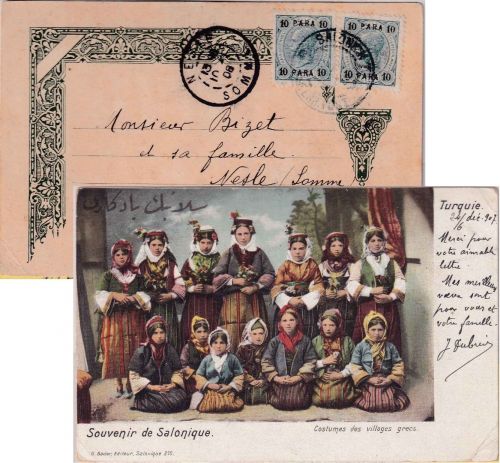 10 PARA 10
10 PARA 10
10 10
10 10
SALONICH
Monsieur Bizet
et sa famille
Nesle / Somme
سلانيك يادكاري
Turquie.
Merci pour
votre aimable
lettre
Mes meilleurs
vœux sont
pour vous et
votre famille.
J Dubreuil
Souvenir de Salonique.
Costumes des villages grecs.
G. Bader, Editeur, Salonique